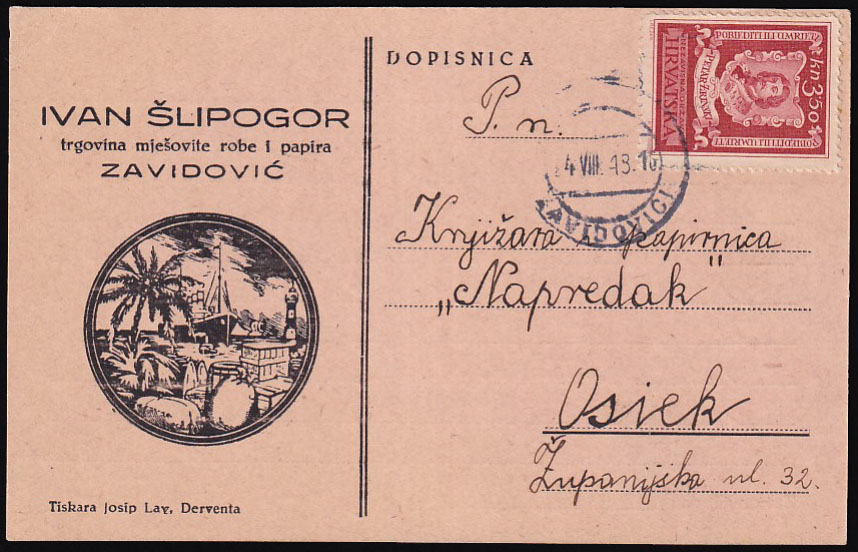 IVAN ŠLIPOGOR
trgovina mješovite robe i papira
ZAVIDOVIĆ
Tiskara Josip Lay, Derventa
DOPISNICA
P. n.
Knjižara i papirnica
„Napredak"
Osiek
Županijska ul. 32.
4 VIII 43.
ZAVIDOVICI
POBIEDITI ILI UMRIETI
kn 3.50
PETAR ZRINSKI
NEZAVISNA DRŽAVA
HRVATSKA
POBIEDITI ILI UMRIETI